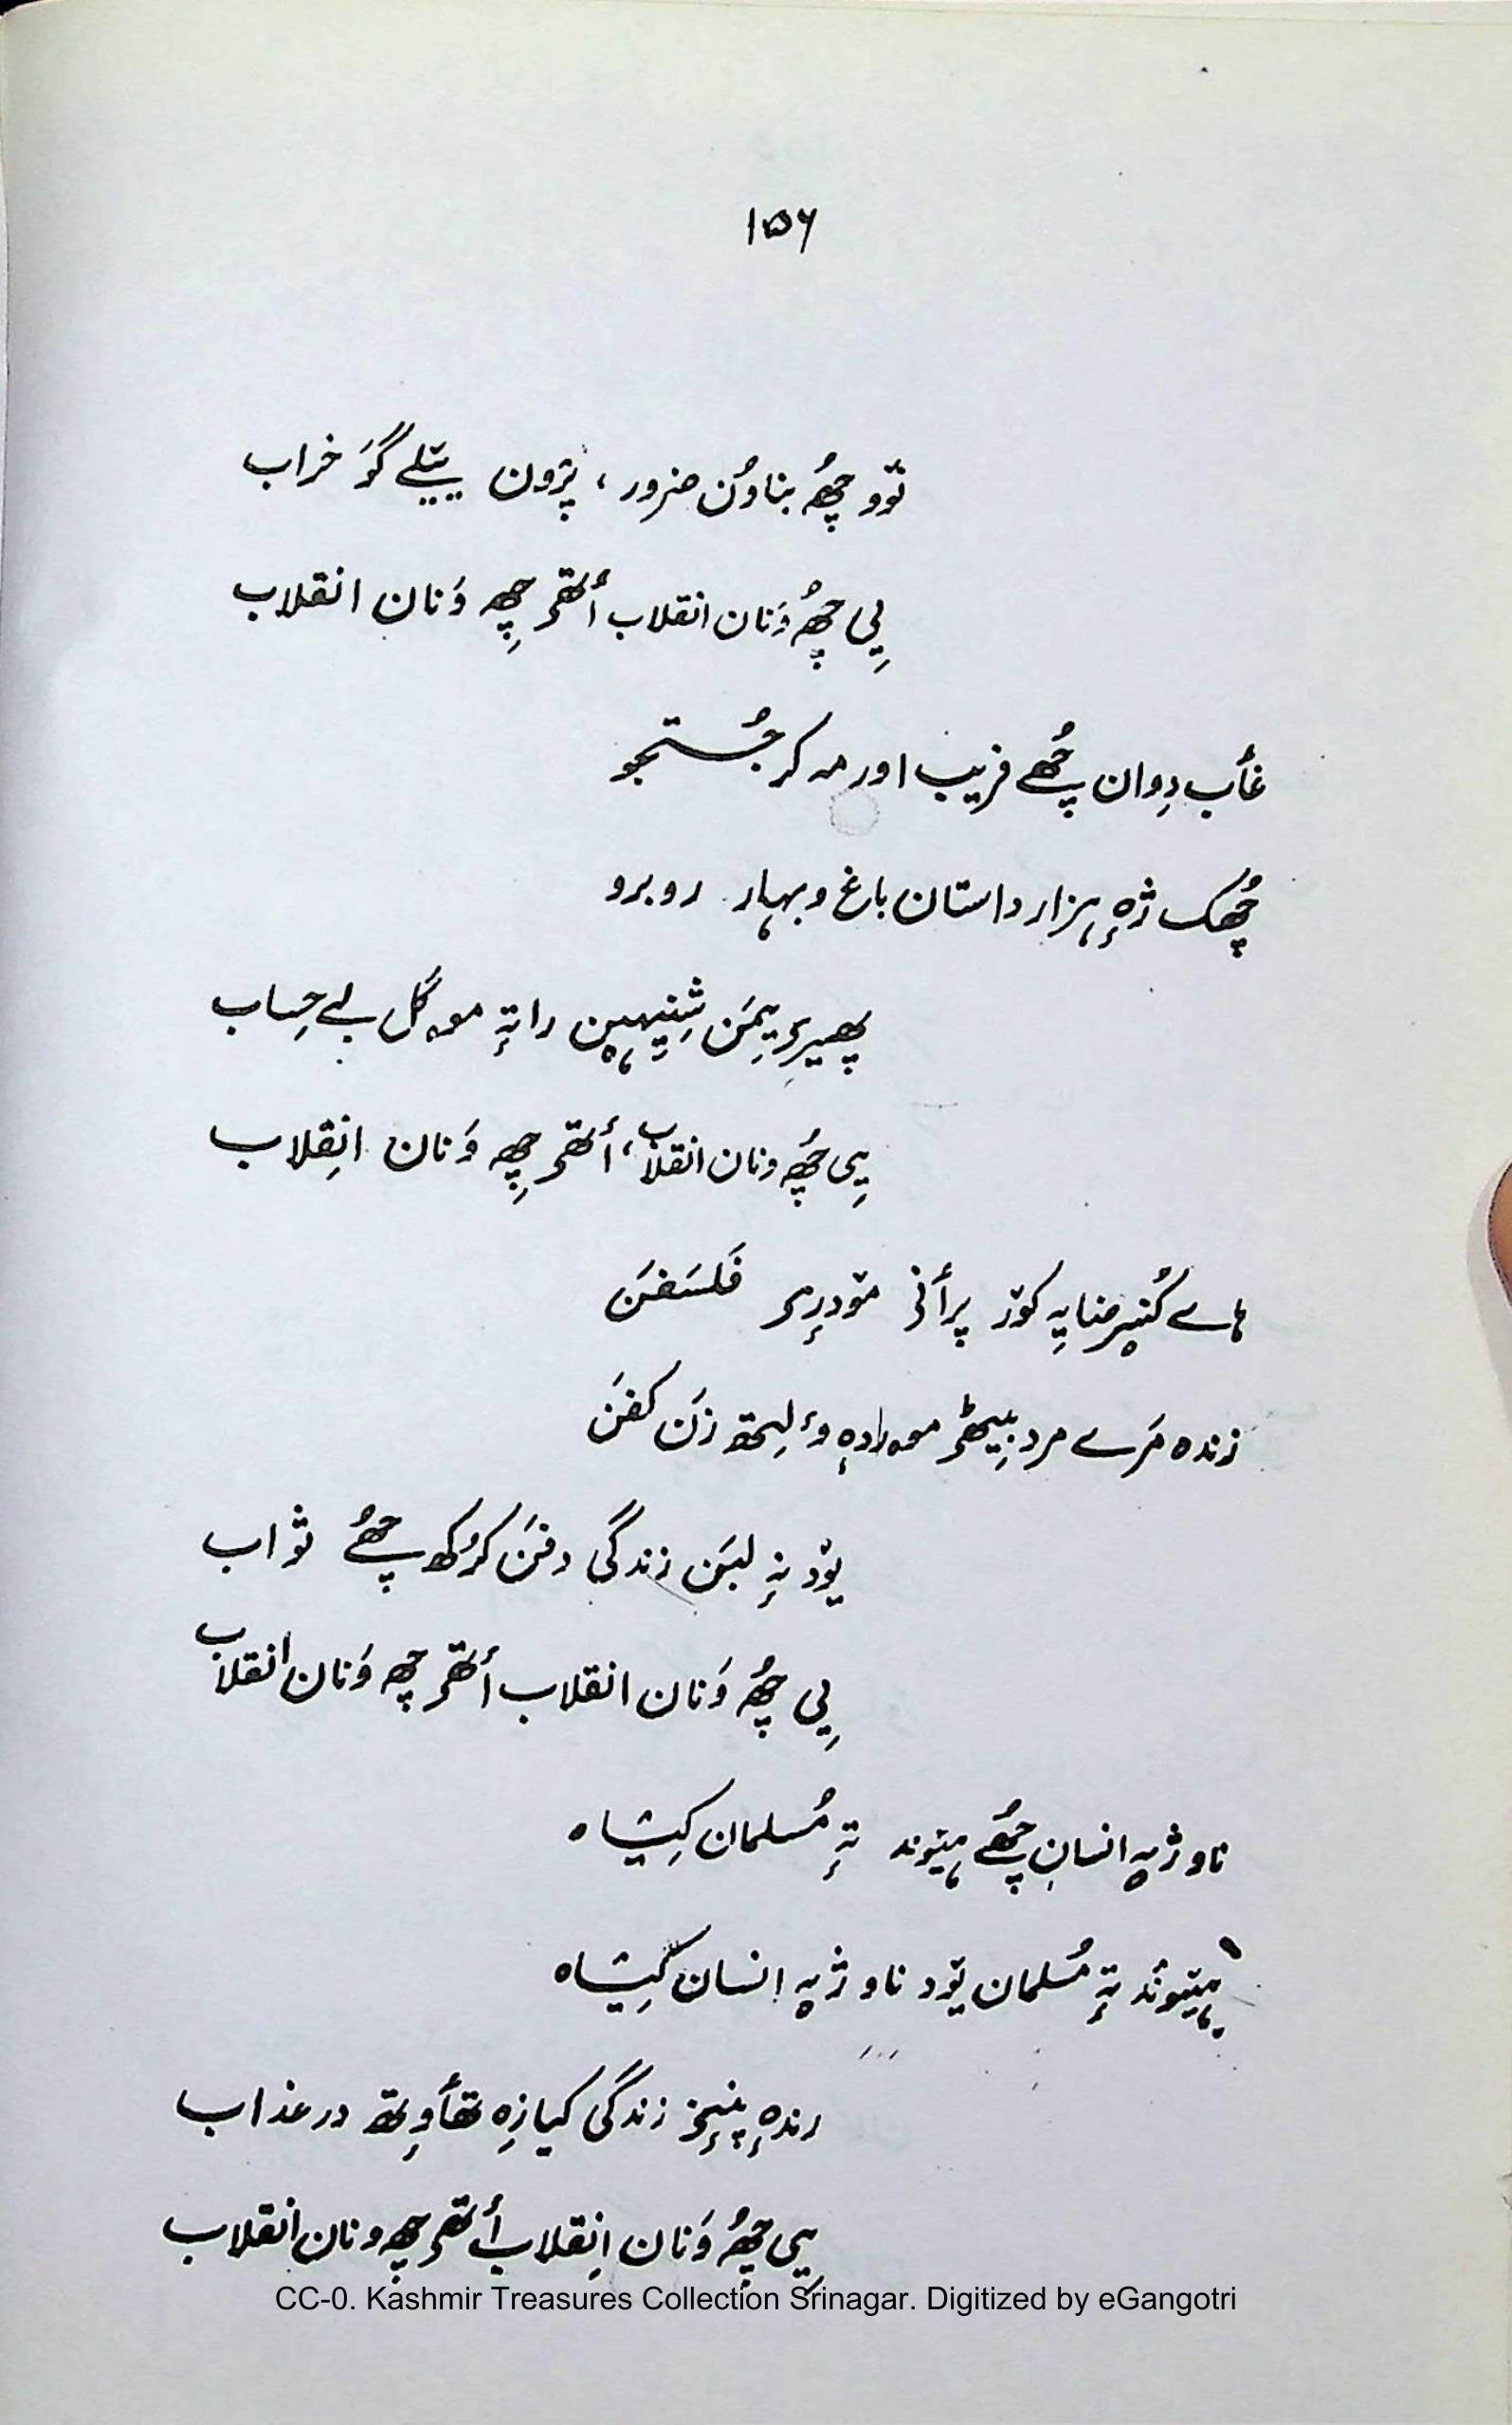 ۱۵۶
نٚوو چھُ بناوُن ضرور، پرٛون ییٚلے گوَ خراب
یِی چھُ وَنان انقلاب أتھۍ چھِ وَنان انقلاب
غٲب دِوان چھُے فریب اور مہ کر جُستجو
چھُک ژٕہ ہزار داستان باغ و بہار روبرو
پھیرِۍ یِمَن شِنؠہن راتہٕ موہ گل بے حِساب
یِی چھُ ونان انقلاب، أتھۍ چھِ وَنان انِقلاب
ہاے کُنِر ضایہِ کوٚر پرٲنۍ موٚدرؠو فَلسَفَن
زندہ مَرے مرد بیٖٹھۍ وٕلِتھ زَن کفَن
یوٚد نہٕ لبَن زندگی دفن کرُکھ چھُے ثواب
یِی چھُ وَنان انقلاب أتھۍ چھِ وَنان انقلاب
ناو ژیہ انسان چھُے ہیٚوند تہٕ مُسلمان کیٖشاہ
ہیٚوند تہٕ مُسلمان یوٚد ناو ژیہ انسان کیٖشاہ
رندہٕ پنٕنۍ زندگی کیازِہ تھٲوِتھ در عذاب
یِی چھُ وَنان اِنقلاب أتھۍ چھِ ونان انقلاب
CC-0. Kashmir Treasures Collection Srinagar. Digitized by eGangotri